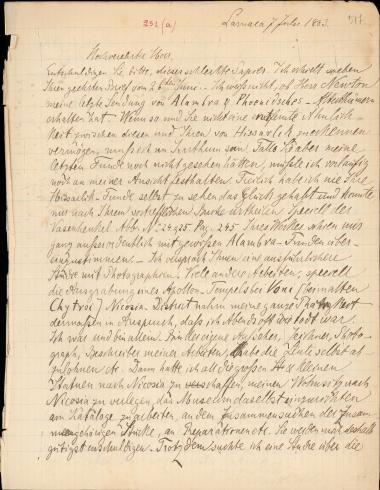 251 (a)
Larnaca 7 Juli 1883.
517.
Hochverehrter Herr,
Entschuldigen Sie, bitte, dieses schlechte Papier. Ich erhielt soeben
Ihren geehrten Brief vom 26 Juni. Ich weiß nicht, ob Herr Newton
meine letzte Sendung von Alambra & Phoenidschos - Alterthümern
erhalten hat. Wenn so und Sie nicht eine Ähnlich-
keit zwischen diesen und Ihren von Hissarlik zu erkennen
vermögen, muß ich im Irrthum sein. Falls Sie aber meine
letzten Funde noch nicht gesehen hätten, müßte ich vorläufig
noch an meiner Ansicht festhalten. Freilich habe ich nie Ihre
Hissarlik-Funde selbst zu sehen das Glück gehabt und konnte
nur nach Ihrem vortrefflichen Buche urtheilen. Speciell der
Vasenhenkel Abb. N. Pag. 245 Ihres Werkes schien mir
ganz außerordentlich mit gewissen Alambra-Funden über-
einzustimmen. Ich versprach Ihnen eine ausführlichere
Studie mit Photographien. Viele andere Arbeiten, speciell
die Ausgrabung eines Apollon-Tempels bei Voni (beim alten
Chytroi) Nicosia District nahm meine ganze Thatkraft
dermaßen in Anspruch, daß ich Abends oft wie todt war.
Ich war und bin allein. Bin der eigne Aufseher, Zeichner, Photo-
graph, Beschreiber meiner Arbeiten, habe die Leute selbst ab-
zulohnen etc. Dann hatte ich all die großen & kleinen
Statuen nach Nicosia zu schaffen, meinen Wohnsitz nach
Nicosia zu verlegen, das Museum daselbst einzurichten
am Kataloge zu arbeiten, an dem Zusammensuchen der zusam-
mengehörigen Stücke, an Reparationen etc. Sie werden mich deshalb
gütigst entschuldigen. Trotzdem suchte ich eine Studie über die